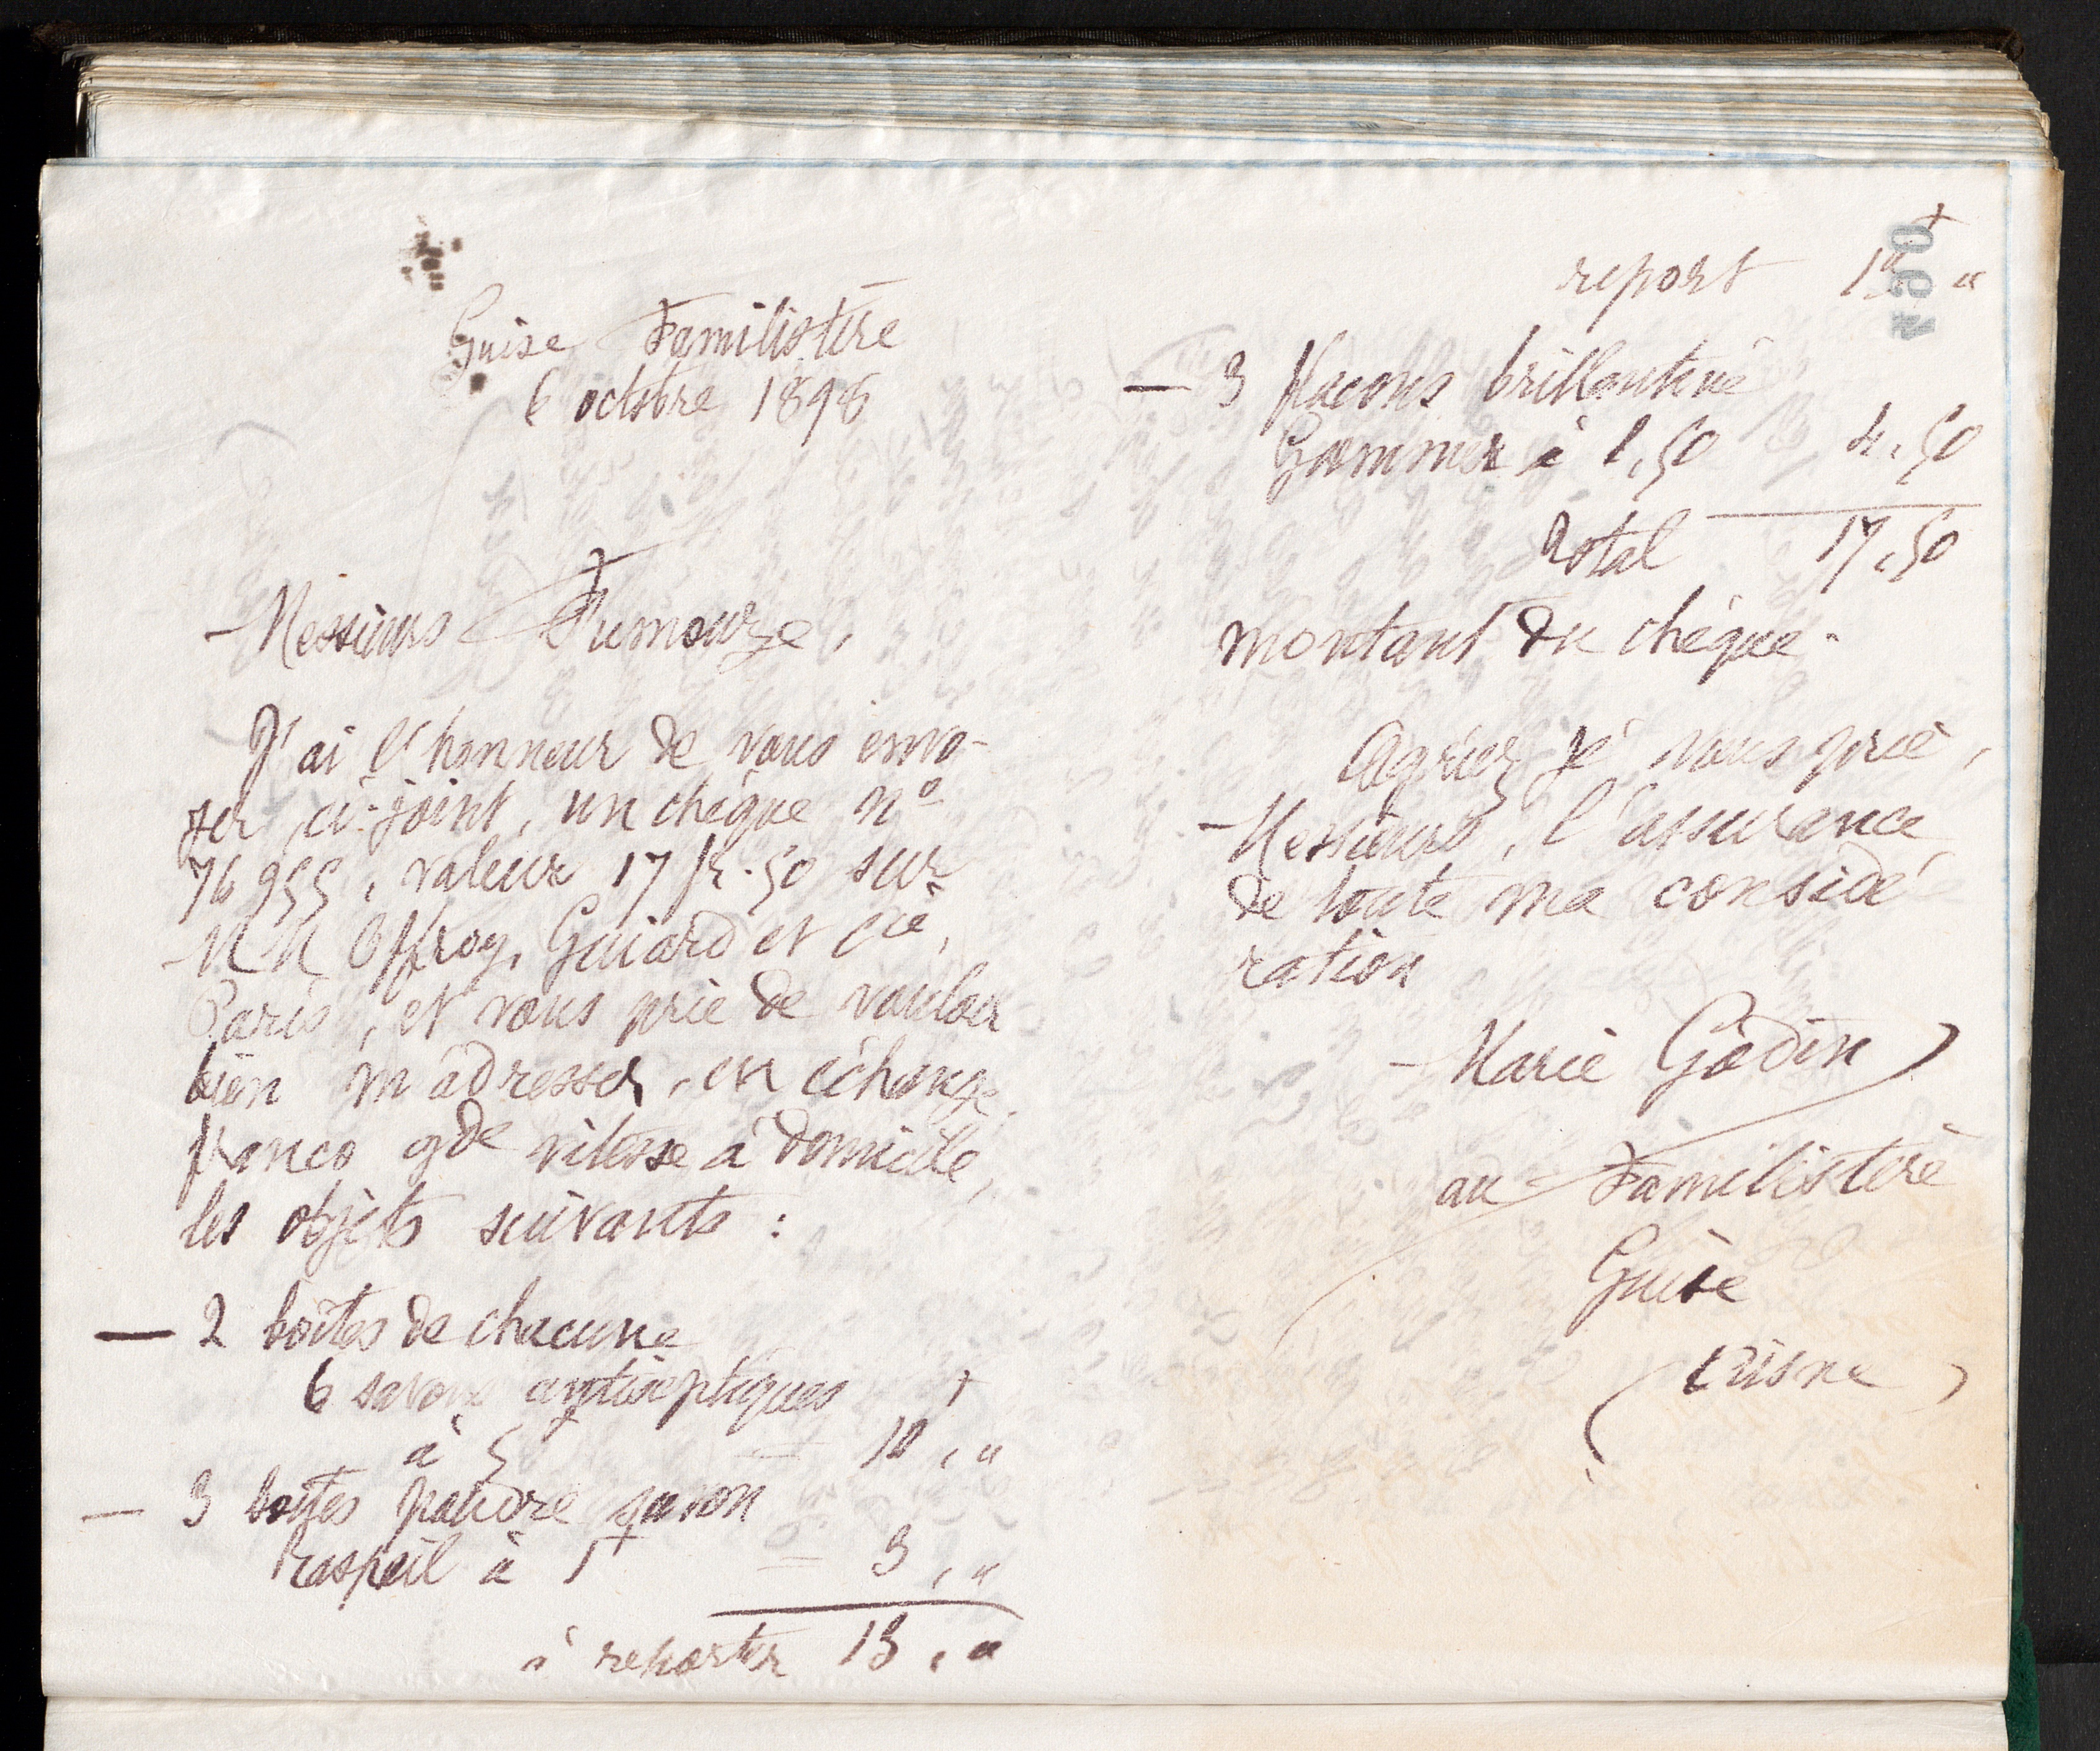 Guise Familistère
6 octobre 1898
Messieurs Fumouze,
J'ai l'honneur de vous envo-
yer, ci-joint, un chèque n°
76955, valeur 17 fr. 50 sur
MM Offroy, Guiard et Cie,
Paris, et vous prie de vouloir
bien m'adresser, en échange,
franco gde vitesse à domicile,
les objets suivants :
— 2 boîtes de chacune
6 savons antiseptiques
à 5 = 10, "
— 3 boîtes poudre savon
Raspail à 1f = 3, "
à reporter 13, "
report 13 "
— 3 flacons brillantine
Gommer à 1,50 4,50
Total 17,50
montant du chèque.
Agréez je vous prie,
Messieurs, l'assurance
de toute ma considé
ration
Marie Godin
au Familistère
Guise
(Aisne)